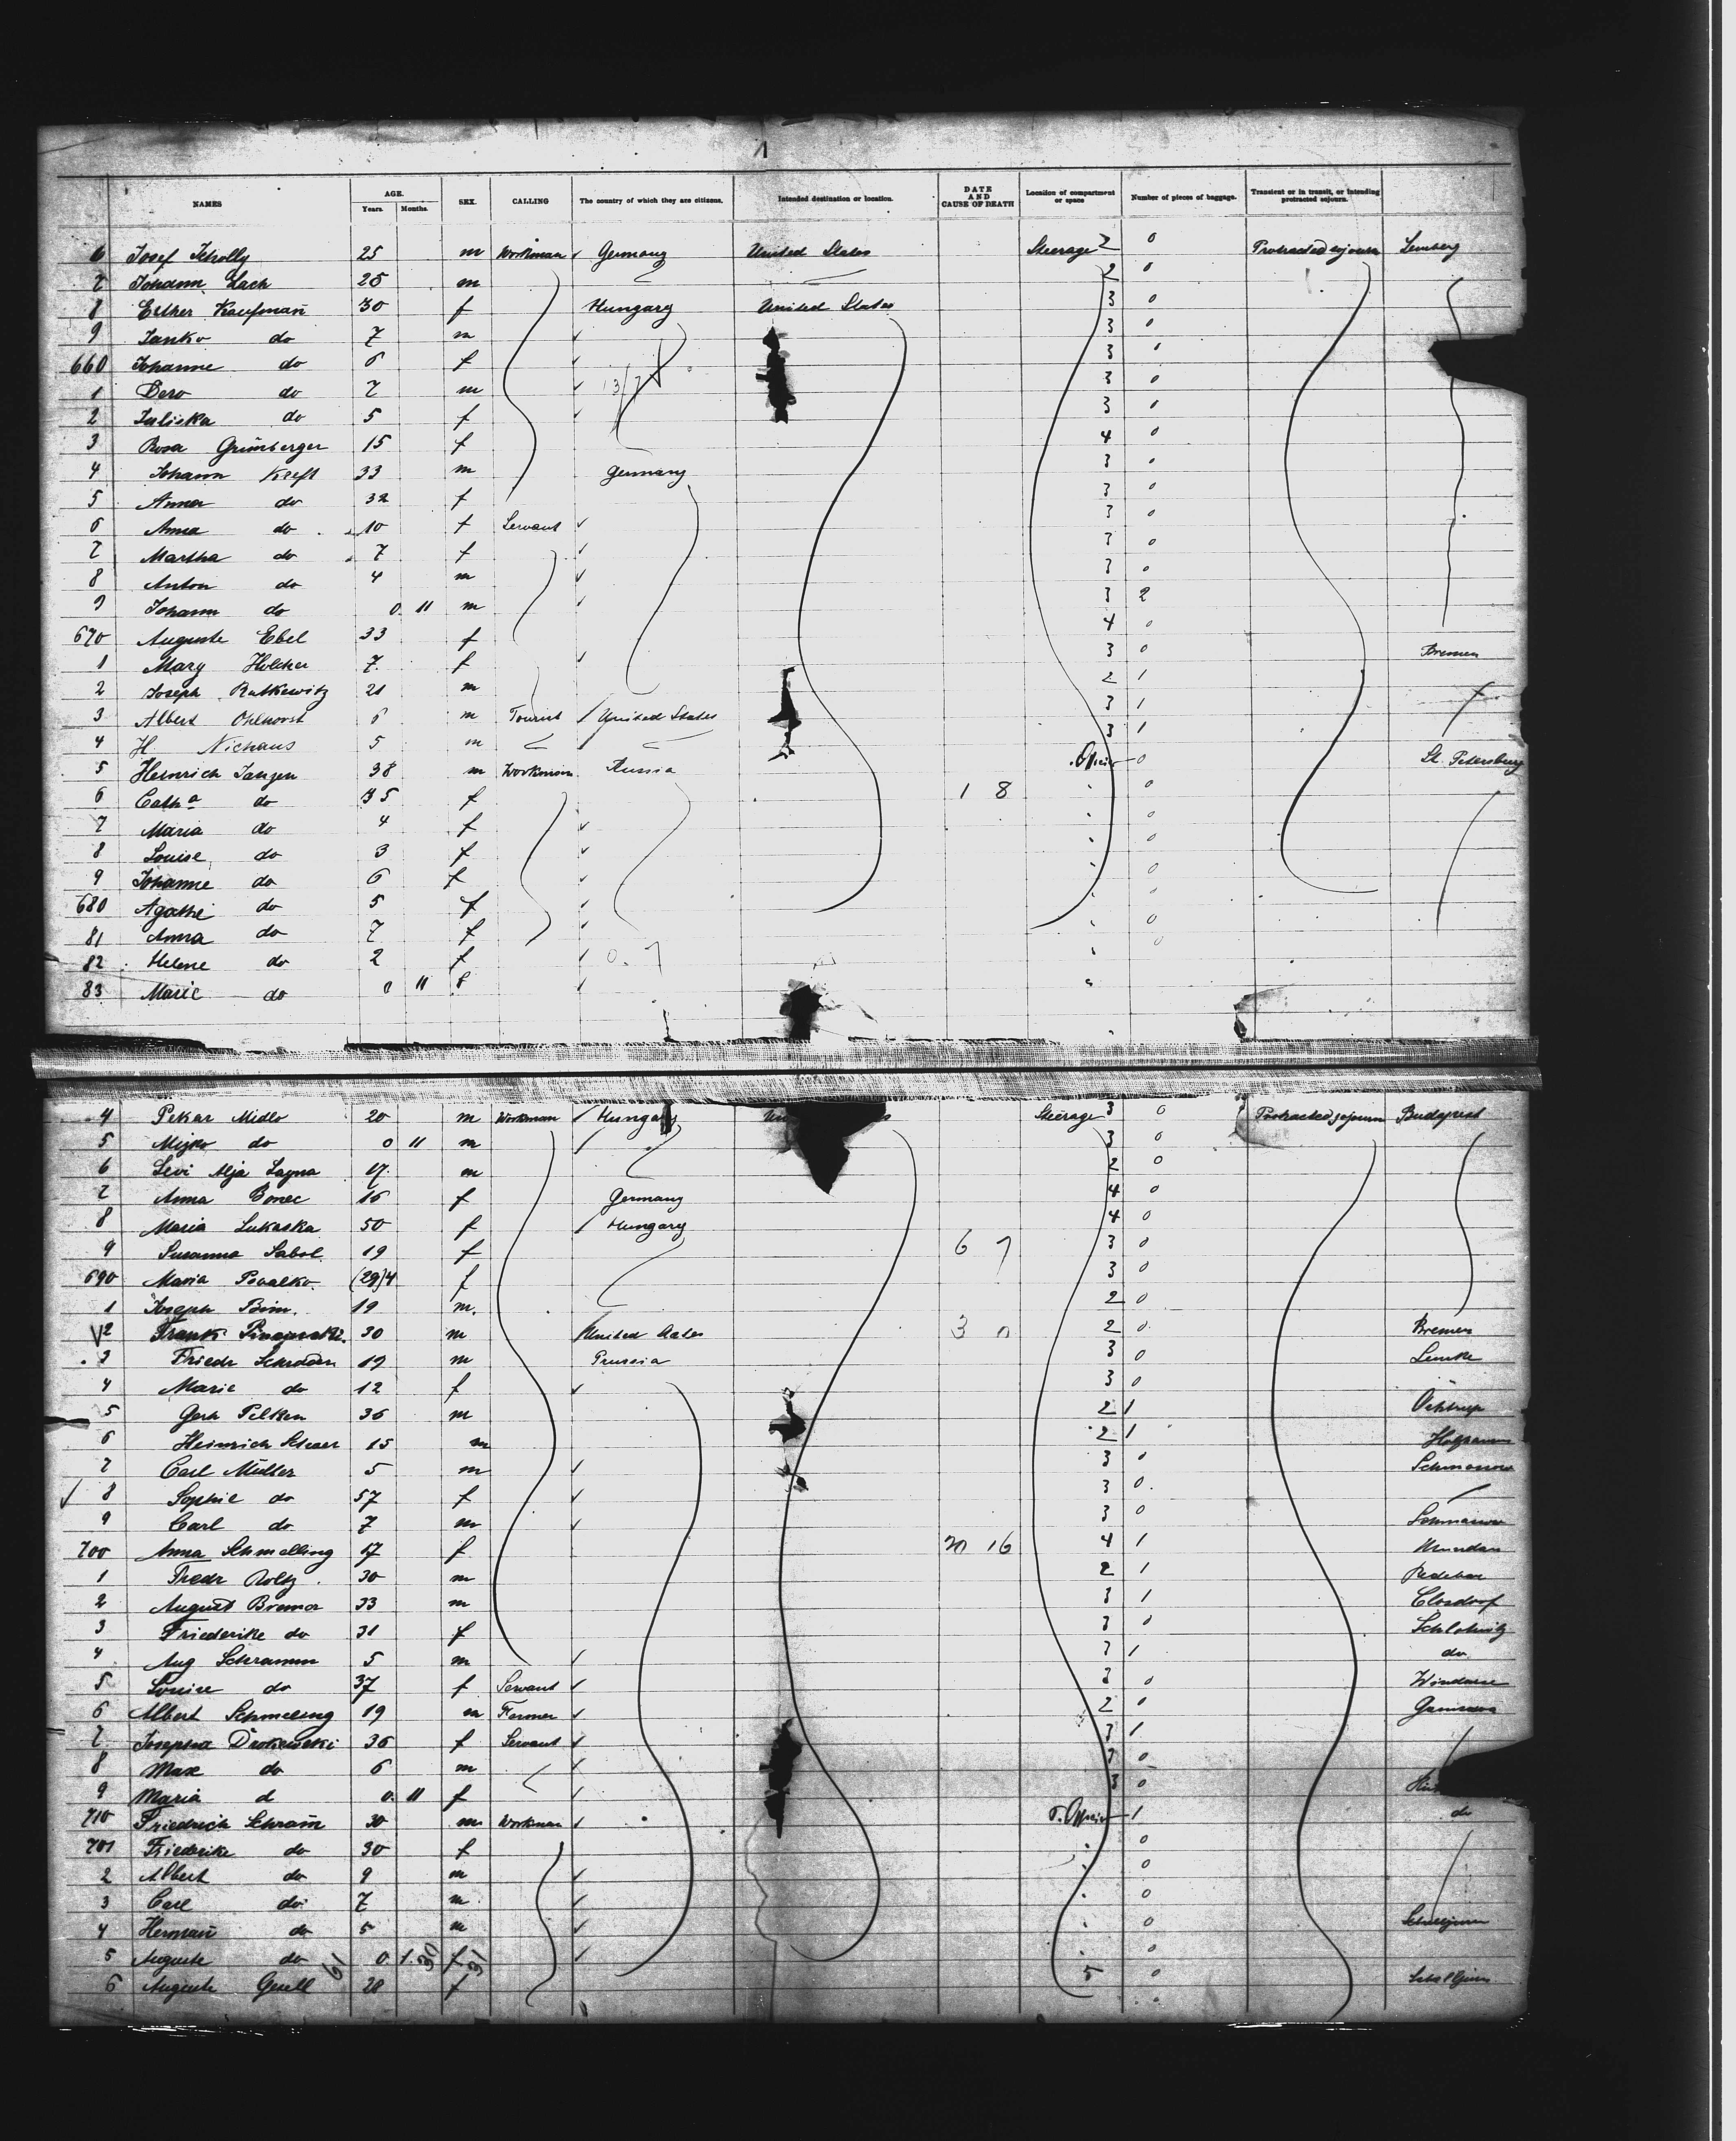 1
NAMES AGE. Years. Months. SEX. CALLING The country of which they are citizens. Intended destination or location. DATE AND CAUSE OF DEATH Location of compartment or space Number of pieces of baggage. Transient or in transit, or intending protracted sojourn.
6 Josef 25 m Workman Germany United States Steerage 2 0 Protracted sojourn Lemberg
7 Johann Lach 25 m 2 0
8 Esther Kaufmañ 30 f Hungary United States 3 0
9 Janko do 7 m 3 0
660 Johanne do 6 f 3 0
1 Dero do 7 m 3 0
2 Juliska do 5 f 3 0
3 Rosa Grünberger 15 f 4 0
4 Johann Kreft 33 m Germany 3 0
5 Anna do 32 f 3 0
6 Anna do 10 f Servant 3 0
7 Martha do 7 f 3 0
8 Anton do 4 m 3 0
9 Johann do 0 11 m 3 2
670 Auguste Ebel 33 f 4 0
1 Mary Holcher 7 f 3 0 Bremen
2 Joseph Rutkewitz 21 m 2 1
3 Albert Ohlhorst 6 m Tourist United States 3 1
4 H. Niehaus 5 m 3 1
5 Heinrich Janzen 38 m Workman Russia 0 St. Petersburg
6 Catha do 35 f 1 8 0
7 Maria do 4 f 0
8 Louise do 3 f 0
9 Johanne do 6 f 0
680 Agathe do 5 f 0
81 Anna do 7 f 0
82 Helene do 2 f 0
83 Marie do 0 11 f
4 Pekar Midlo 20 m Workman Hungary Steerage 3 0 Protracted sojourn Budapest
5 Mijko do 0 11 m 3 0
6 Levi 17 m 2 0
7 Anna Bonec 16 f Germany 4 0
8 Maria Lukaska 50 f Hungary 4 0
9 Susanna Sabol 19 f 6 7 3 0
690 Maria Povalko (29)4 f 3 0
1 Joseph 19 m. 2 0
2 Frank 30 m United States 3 0 2 0 Bremen
3 Friedr Schröder 19 m Prussia 3 0 Lemke
4 Marie do 12 f 3 0
5 Gerh Pelken 36 m 2 1 Ochtrup
6 Heinrich 15 m 2 1
7 Carl Müller 5 m 3 0 Schmarsow
8 Sophie do 57 f 3 0
9 Carl do 7 m 3 0
700 Anna Schmelling 17 f 20 16 4 1
1 Fredr Boltz 30 m 2 1
2 August Bremer 33 m 3 1
3 Friederike do 31 f 3 0
4 Aug Schramm 5 m 3 1 do
5 Louise do 37 f Servant 3 0
6 Albert Schmeling 19 m Farmer 2 0
7 Josepha 36 f Servant 3 1
8 Max do 6 m 3 0
9 Maria d 0 11 f 3 0
710 Friedrich Schram̄ 30 m Workman 1 do
701 Friederike do 30 f 0
2 Albert do 9 m 0
3 Carl do 7 m 0
4 Hermañ do 5 m 0
5 Auguste do 0 1 f 0
6 Auguste Gesell 28 f 5 0